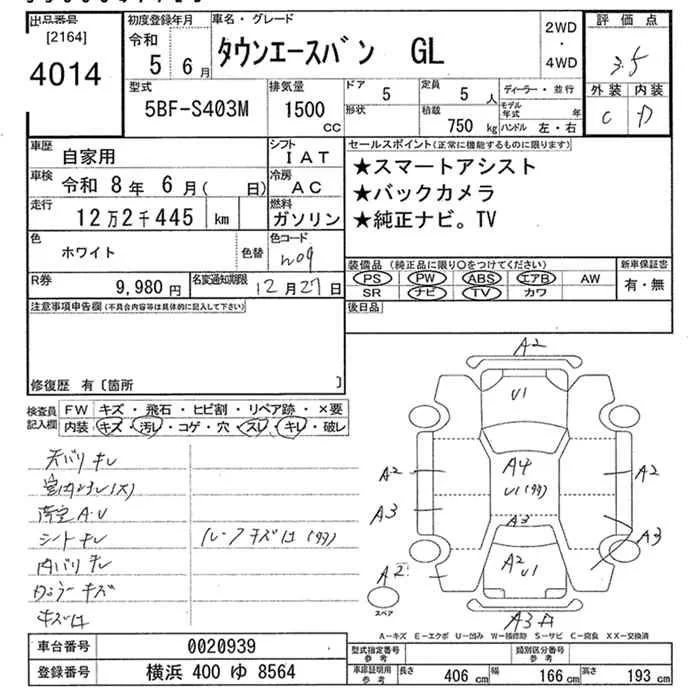 出品番号
[2164]
4014
初度登録年月
令和
5 6月
車名・グレード
タウンエースバン GL
2WD
・
4WD
評価点
3.5
外装 内装
C D
型式
5BF-S403M
排気量
1500
CC
ドア
5
定員
5 人
形状
積載
750 kg
ディーラー・並行
モデル年式 年
ハンドル 左・右
車歴
自家用
シフト
IAT
車検
令和 8年 6月( 日)
冷房
AC
走行
12万2千445 km
燃料
ガソリン
色
ホワイト
色替
色コード
W09
R券
9,980円
名変通知期限
12月27日
セールスポイント(正常に機能するものに限ります)
★スマートアシスト
★バックカメラ
★純正ナビ。TV
装備品(純正品に限り○をつけてください)
PS PW ABS エアB AW
SR ナビ TV カワ
新車保証書
有・無
後日品
注意事項申告欄(不具合内容等は具体的に記入して下さい)
修復歴 有〔箇所 〕
検査員
記入欄
FW キズ・飛石・ヒビ割・リペア跡・×要
内装 キズ・汚レ・コゲ・穴・スレ・キレ・破レ
天バリキレ
シートキレ
内バリキレ
ルーフキズ凹(多)
キズ凹
A2
U1
A4
U1(多)
A3
A2
U1
A2
A3
A2
A2
A3
スペア
A3
A-キズ E-エクボ U-凹み W-補修跡 S-サビ C-腐食 XX-交換済
車台番号
0020939
登録番号
横浜 400 ゆ 8564
型式指定番号
参考
類別区分番号
参考
車庫証明用
参考
長さ 406 cm 幅 166 cm 高さ 193 cm